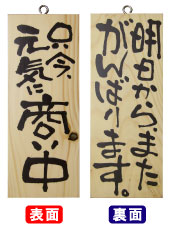 只今、
元気に
商い中
明日から、また
がんばります。
表面
裏面